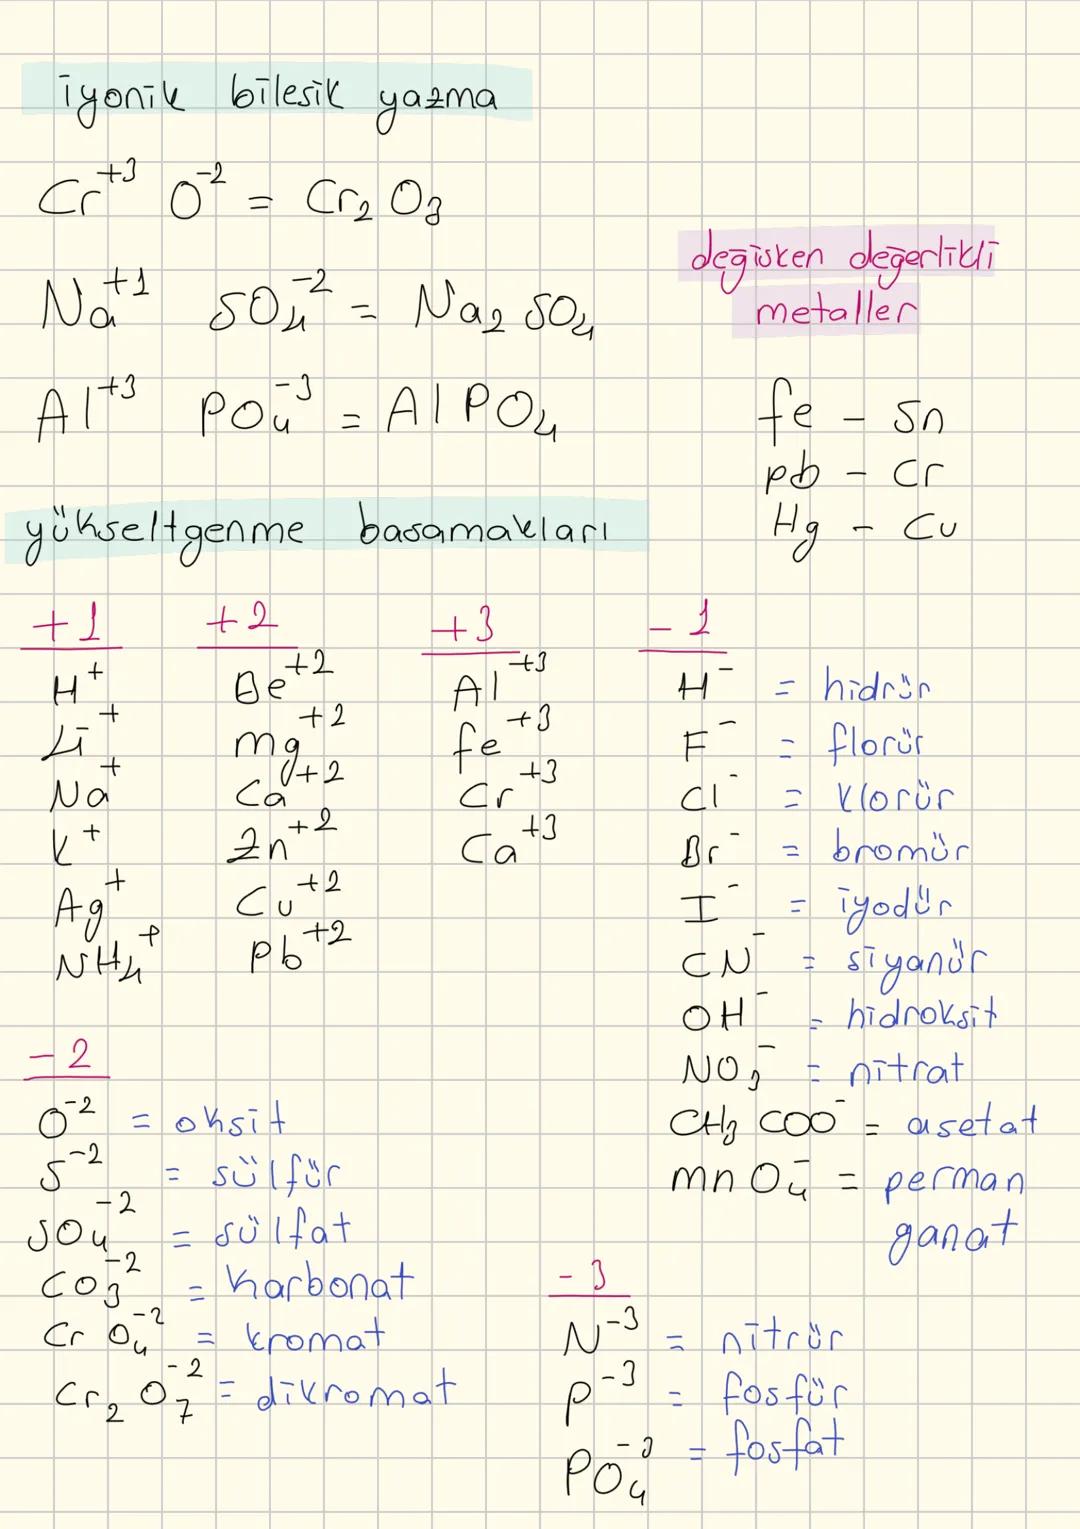 iyonik bilesik yazma
Cr⁺³ O⁻² = Cr₂O₃
Na⁺¹ SO₄⁻² = Na₂SO₄
Al⁺³ PO₄⁻³ = AlPO₄
değisken değerlikli
metaller
fe - Sn
pb - Cr
Hg - Cu
yükseltgenme basamakları
+1
H⁺
Li⁺
Na⁺
K⁺
Ag⁺
NH₄⁺
+2
Be⁺²
mg⁺²
Ca⁺²
Zn⁺²
Cu⁺²
Pb⁺²
+3
Al⁺³
fe⁺³
Cr⁺³
Ca⁺³
-1
H⁻ = hidrür
F⁻ = florür
Cl⁻ = klorür
Br⁻ = bromür
I⁻ = iyodür
CN⁻ = siyanür
OH⁻ = hidroksit
NO₃⁻ = nitrat
CH₃COO⁻ = asetat
mnO₄⁻ = perman
ganat
-2
O⁻² = oksit
S⁻² = sülfür
SO₄⁻² = sülfat
CO₃⁻² = karbonat
CrO₄⁻² = kromat
Cr₂O₇⁻² = dikromat
-3
N⁻³ = nitrür
P⁻³ = fosfür
PO₄⁻³ = fosfat